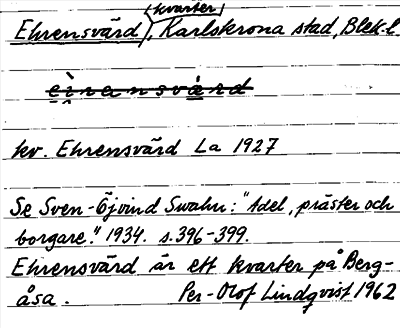 (kvarter)
Ehrensvärd, Karlskrona stad, Blek.l
kv. Ehrensvärd La 1927
Se Sven-Öjvind Swahn: "Adel, präster och
borgare." 1934. s.396-399.
Ehrensvärd är ett kvarter på Berg-
åsa. Per-Olof Lindqvist 1962